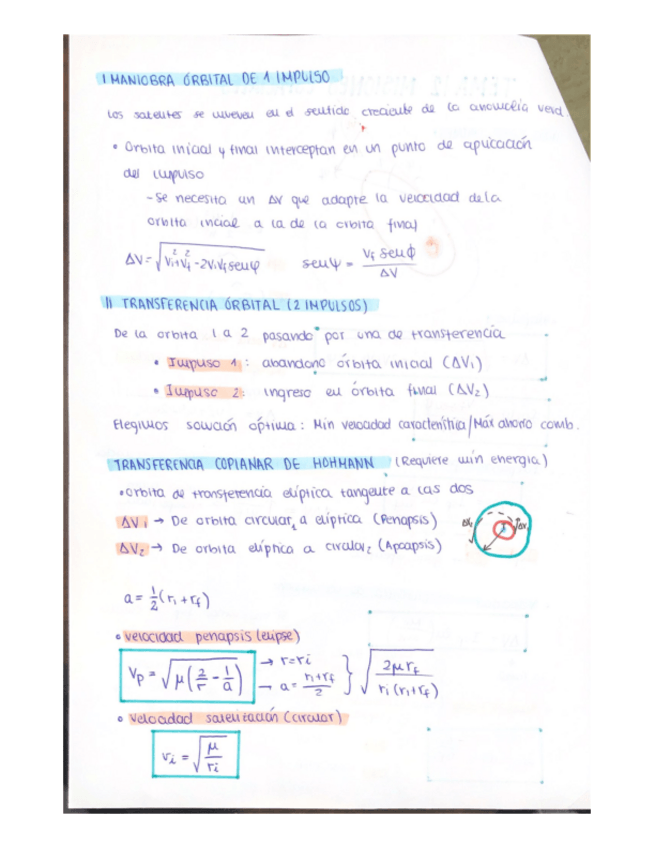 I MANIOBRA ÓRBITAL DE 1 IMPULSO
Los satelites se mueven en el sentido creciente de la anomalía verd.
• Orbita inicial y final interceptan en un punto de aplicación
del impulso
- Se necesita un ΔV que adapte la velocidad de la
orbita incial a la de la orbita final
ΔV = √(Vi²+Vf² - 2ViVf senφ)    senψ = Vf senϕ / ΔV
II TRANSFERENCIA ÓRBITAL (2 IMPULSOS)
De la orbita 1 a 2 pasando por una de transferencia
• Impulso 1: abandono órbita inicial (ΔV₁)
• Impulso 2: ingreso en órbita final (ΔV₂)
Elegimos solución óptima: Min velocidad característitia/Máx ahorro comb.
TRANSFERENCIA COPLANAR DE HOHMANN (Requiere min energia)
• Orbita de transferencia elíptica tangente a las dos
ΔV₁ → De orbita circular₁ a elíptica (Periapsis)
ΔV₂ → De orbita elíptica a circular₂ (Apoapsis)
a = ½(ri + rf)
• velocidad periapsis (elipse)
Vp = √(μ(2/r - 1/a)) → r = ri → a = (ri+rf)/2 } √(2μrf / ri(ri+rf))
• velocidad satelización (circular)
vi = √(μ/ri)